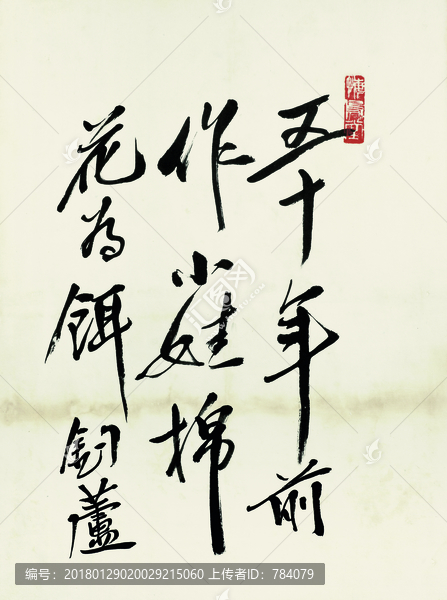 五十年前
作小娃棉
花为餌釣蘆
编号：20180129020029215060 上传者ID：784079